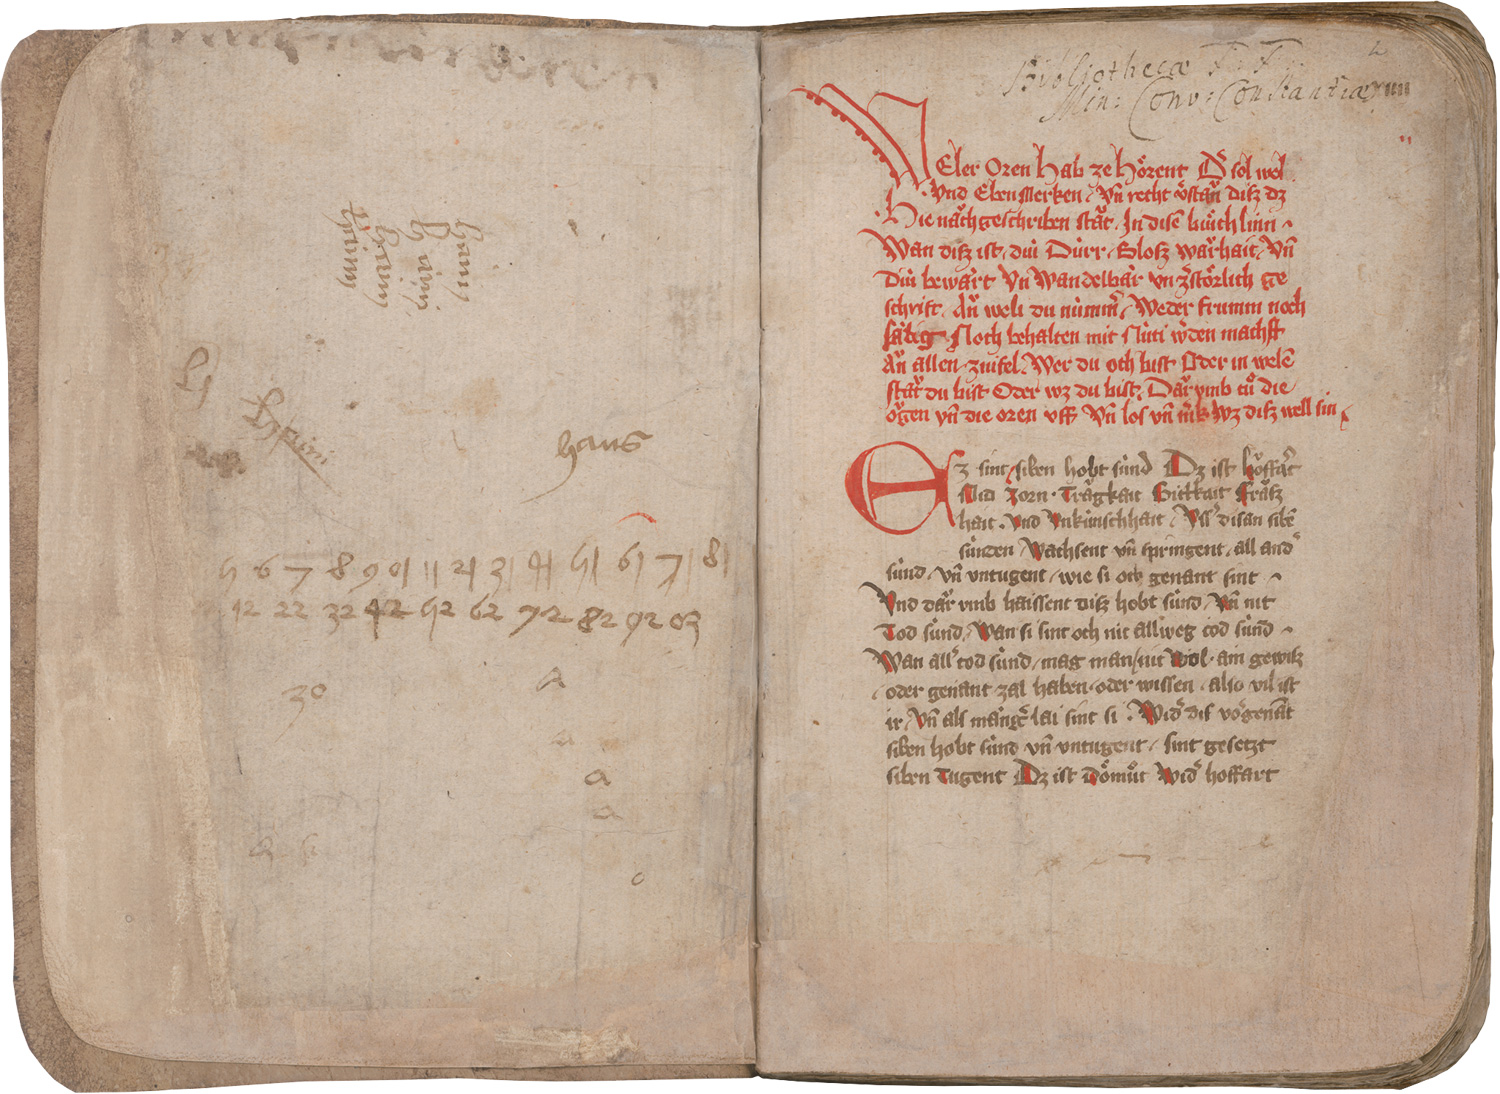 hans
h 6 7 8 9 01 11 21 31 41 51 61 71 81
12 22 32 42 52 62 72 82 92 03
30
a
a
a
a
Bibliothecæ F. F.
Min: Conv: Constantiæ
WEler Oren hab ze hőrent Dˀ sol wol
Vnd Eben Merken / Vn̄ recht v̊stan̄ disz dz
Hie năchgeschriben stăt. In disē bůchlinn
Wan disz ist / dui Dürr / Blosz warhait / Vn̄
Diu bewărt Vn̄ Wandelbăr vn zˀstőrlich ge
schrift. Ăn weli du nümmˀ / Weder frumm noch
sălig Noch behalten mit Nüti wˀden machst
Ăn allen zuifel. Wer du och bist Oder in welē
stăt du bist Oder wz du bist. Dar vmb tů die
ŏgen vn̄ die oren vff Vn̄ los vn̄ mˀk Wz disz well sin
Ez sint / siben hobt sünd Dz ist hoffartˀ
Nid Zorn · Trăgkait Gitkait Frăsz
hait. Vnd Vnkünschhait / Vssˀ disan sibē
sünden / Wachsent vn̄ springent / all andˀ
sünd / vn̄ vntugent / wie si och genant sint
Vnd dar vmb haissent disz hobt sünd / Vn̄ nit
Tod sünd / Wan si sint och nit allweg tod sünd
Wan allˀ tod sünd / mag man / nit Wol · ain gewisz
oder genant zal haben · oder wissen / also vil ist
ir / Vn̄ als mangˀlai sint si. Widˀ dis vorgenāt
siben hobt sünd vn̄ vntugent / sint gesetzt
siben Tugent Dz ist Dŏmůt Widˀ hoffart